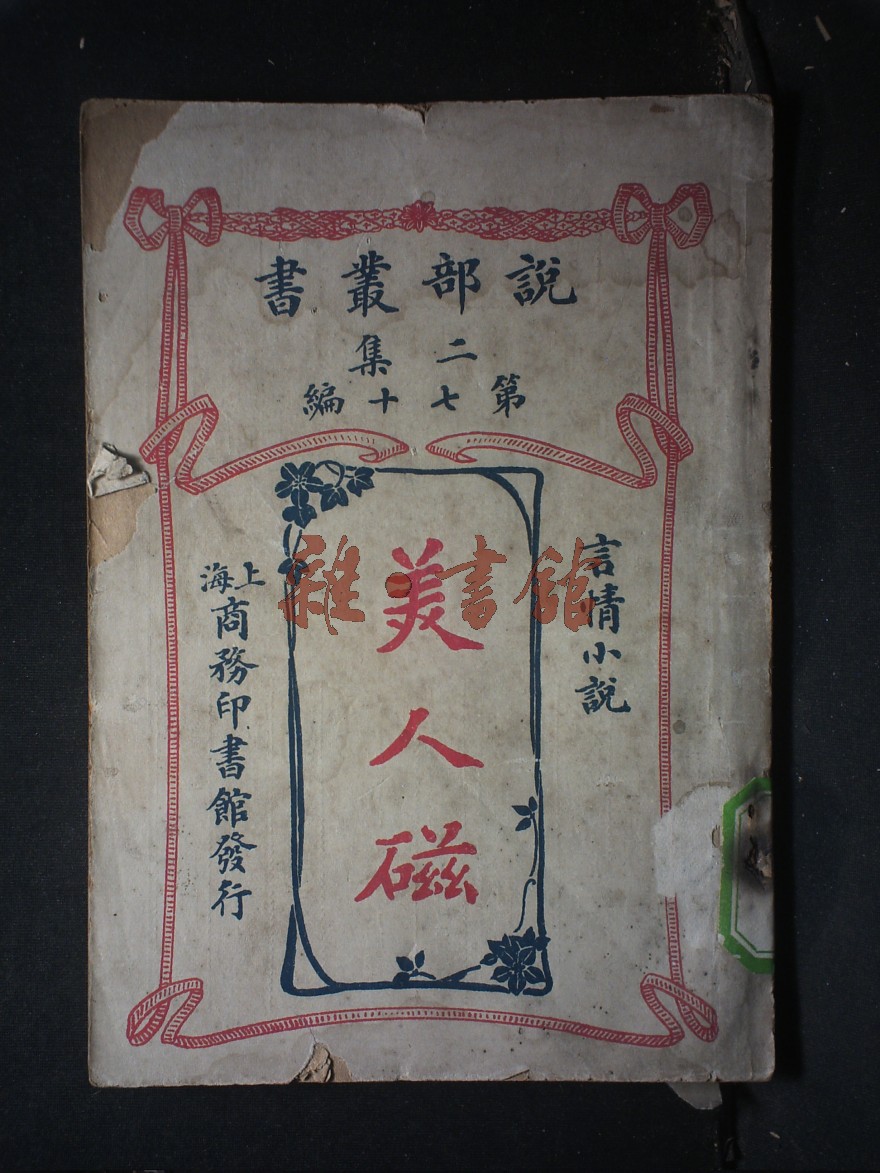 說部叢書
二集
第七十編
言情小說
美人磁
上海商務印書館發行
雜·書館